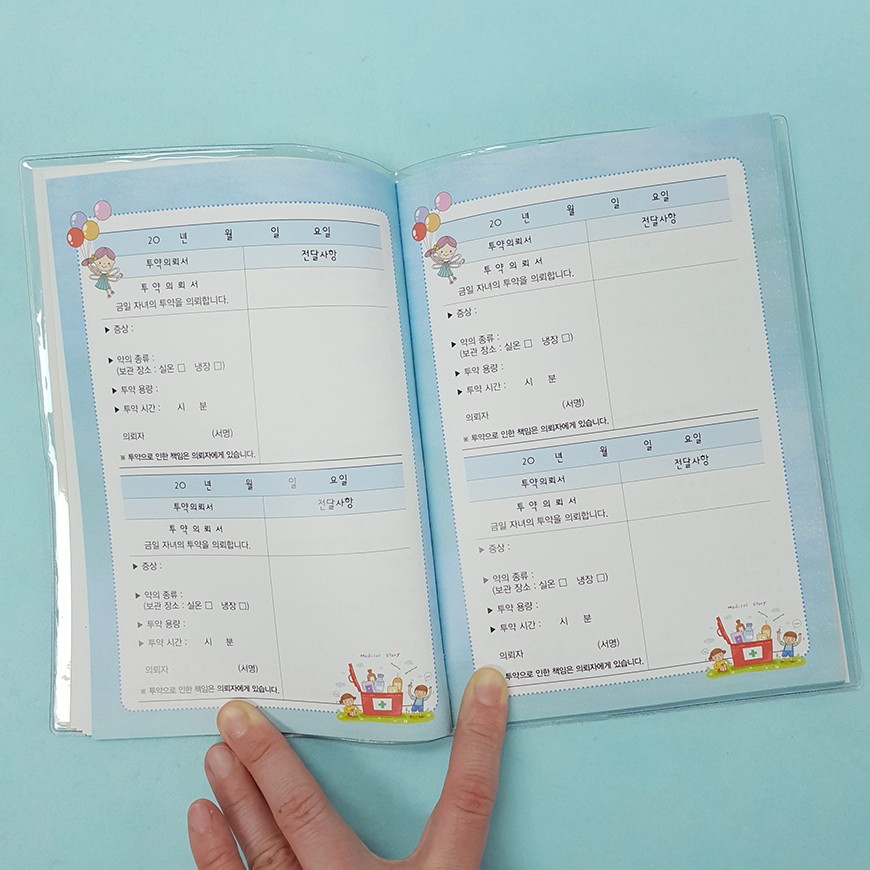 20 년 월 일 요일
투약의뢰서 전달사항
투 약 의 뢰 서
금일 자녀의 투약을 의뢰합니다.
▶ 증상 :
▶ 약의 종류 :
(보관 장소 : 실온 □ 냉장 □)
▶ 투약 용량 :
▶ 투약 시간 : 시 분
의뢰자 (서명)
※ 투약으로 인한 책임은 의뢰자에게 있습니다.
20 년 월 일 요일
투약의뢰서 전달사항
투 약 의 뢰 서
금일 자녀의 투약을 의뢰합니다.
▶ 증상 :
▶ 약의 종류 :
(보관 장소 : 실온 □ 냉장 □)
▶ 투약 용량 :
▶ 투약 시간 : 시 분
의뢰자 (서명)
※ 투약으로 인한 책임은 의뢰자에게 있습니다.
Medical Story
20 년 월 일 요일
투약의뢰서 전달사항
투 약 의 뢰 서
금일 자녀의 투약을 의뢰합니다.
▶ 증상 :
▶ 약의 종류 :
(보관 장소 : 실온 □ 냉장 □)
▶ 투약 용량 :
▶ 투약 시간 : 시 분
의뢰자 (서명)
※ 투약으로 인한 책임은 의뢰자에게 있습니다.
20 년 월 일 요일
투약의뢰서 전달사항
투 약 의 뢰 서
금일 자녀의 투약을 의뢰합니다.
▶ 증상 :
▶ 약의 종류 :
(보관 장소 : 실온 □ 냉장 □)
▶ 투약 용량 :
▶ 투약 시간 : 시 분
의뢰자 (서명)
투약으로 인한 책임은 의뢰자에게 있습니다.
Medical Story